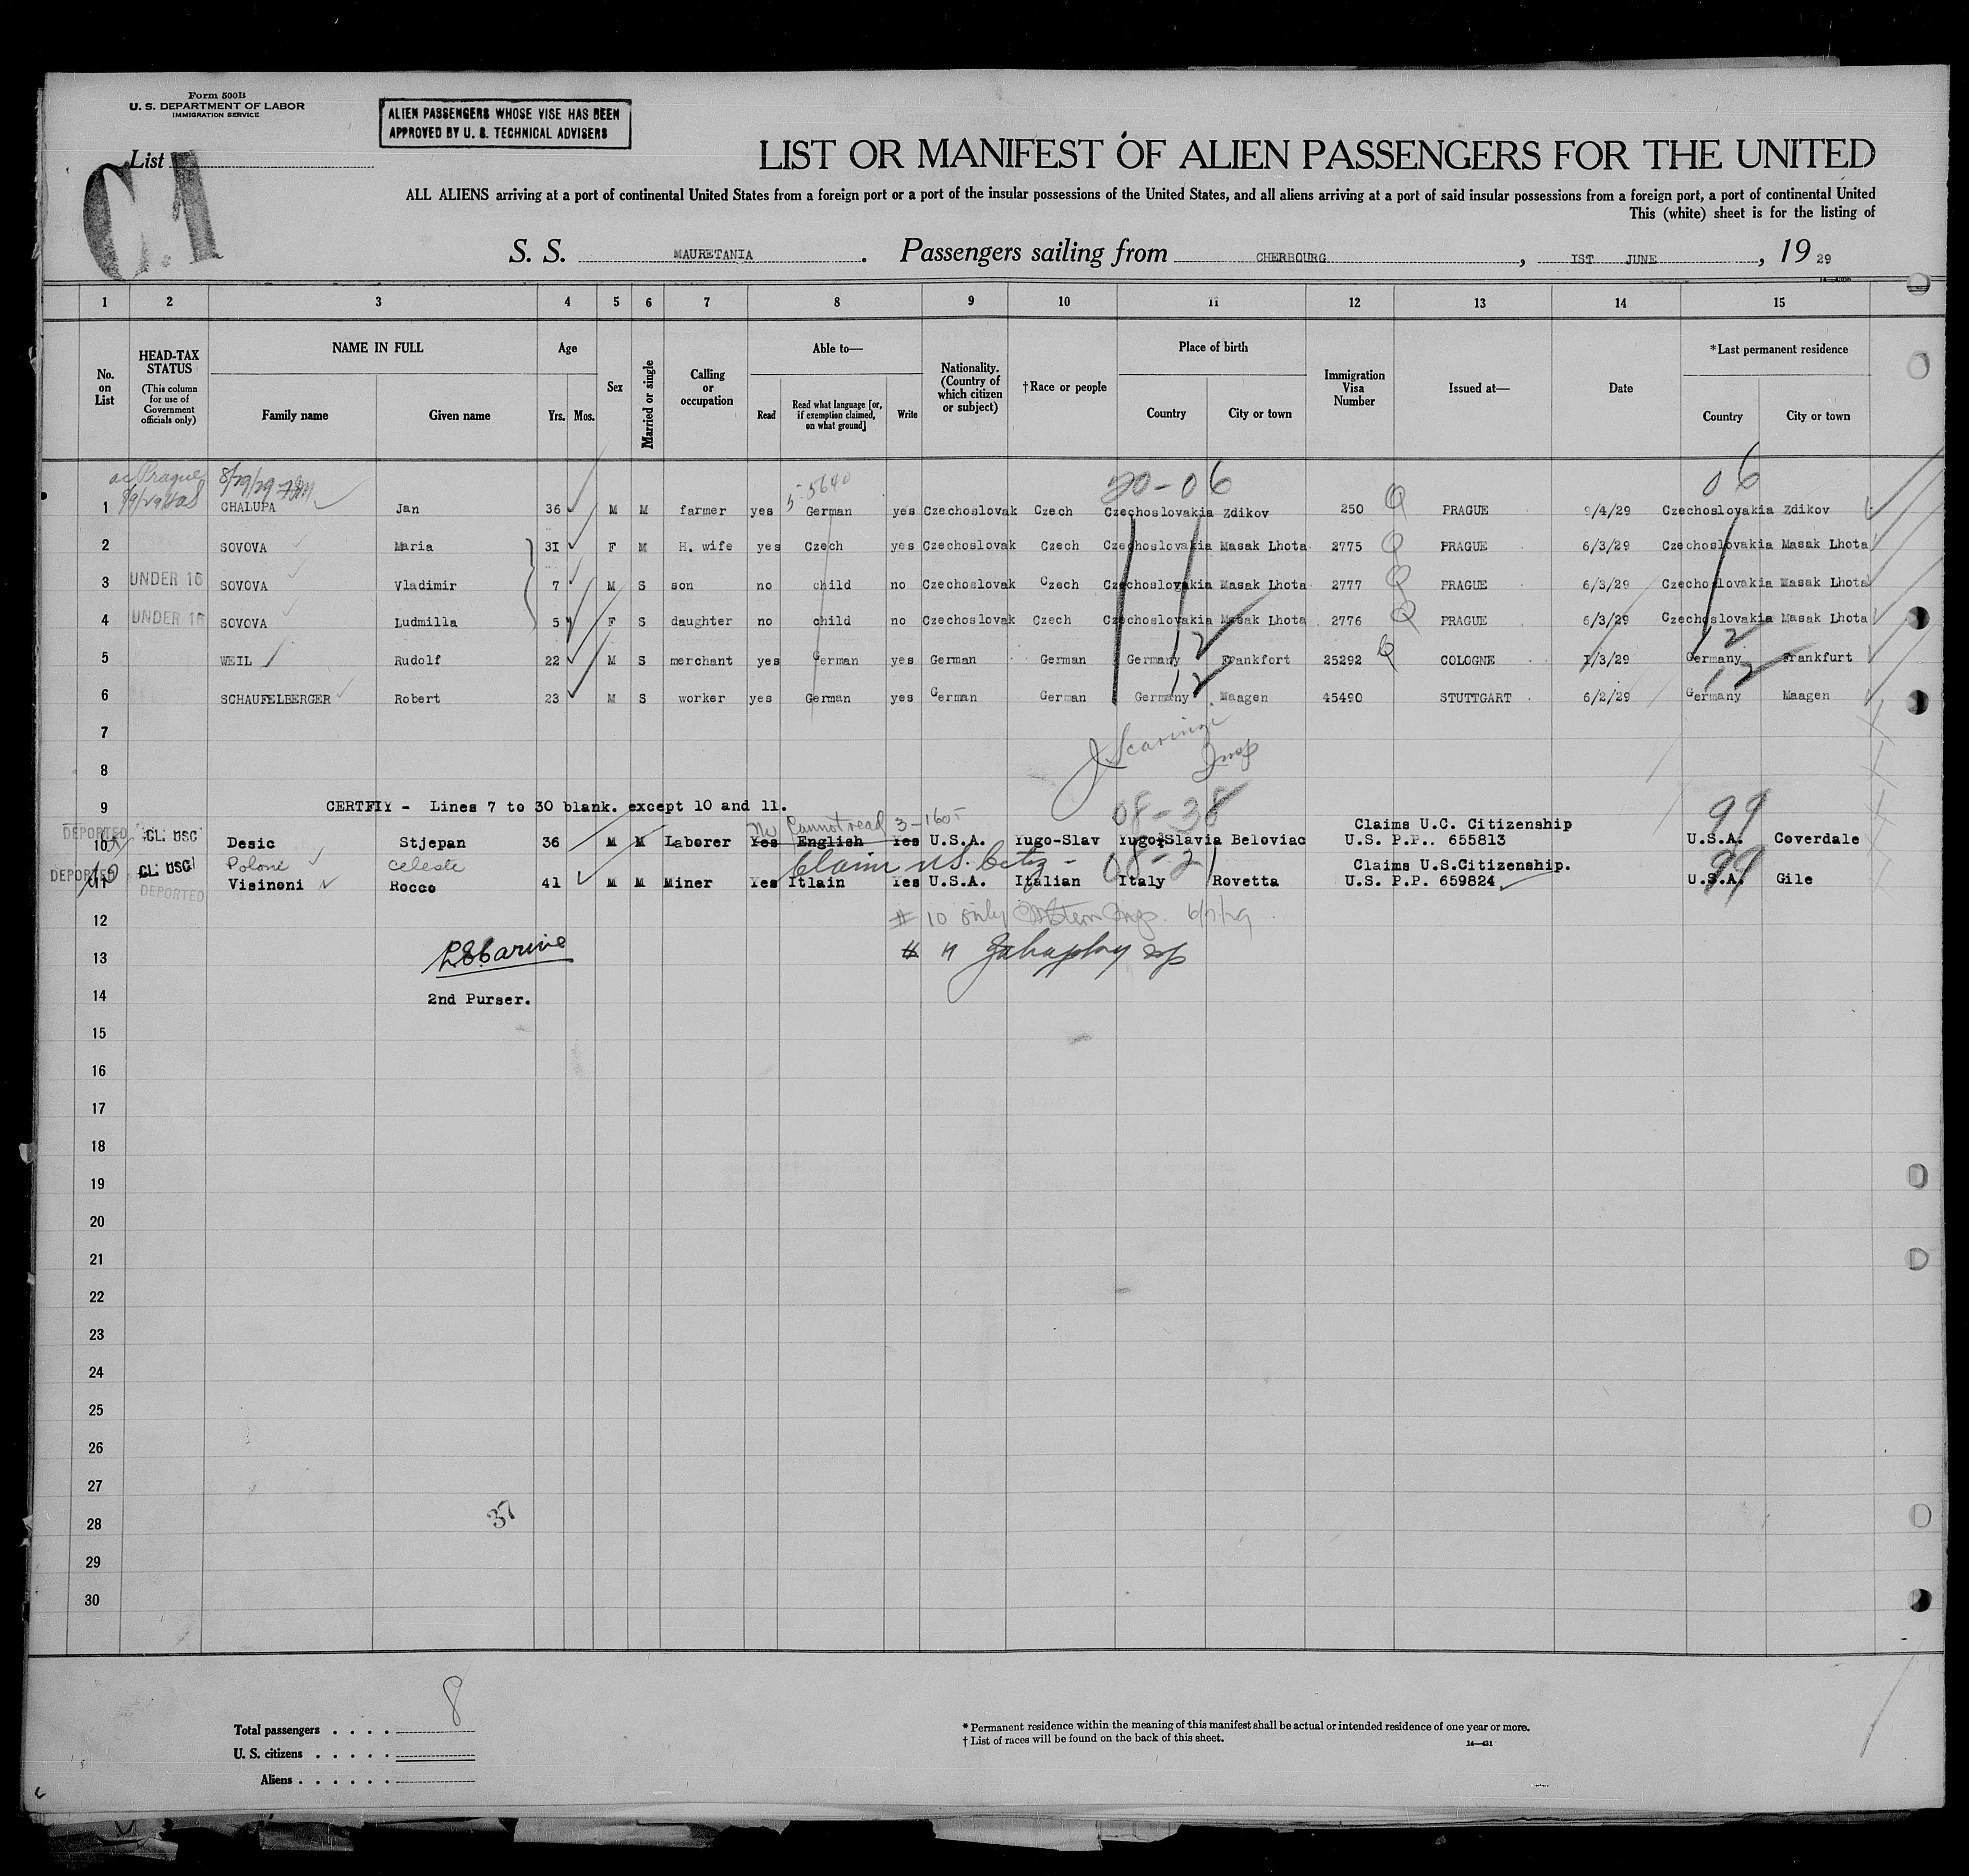 Form 500B
U. S. DEPARTMENT OF LABOR
IMMIGRATION SERVICE
ALIEN PASSENGERS WHOSE VISE HAS BEEN
APPROVED BY U. S. TECHNICAL ADVISERS
List
C.1
LIST OR MANIFEST OF ALIEN PASSENGERS FOR THE UNITED
ALL ALIENS arriving at a port of continental United States from a foreign port or a port of the insular possessions of the United States, and all aliens arriving at a port of said insular possessions from a foreign port, a port of continental United
This (white) sheet is for the listing of
S. S. MAURETANIA. Passengers sailing from CHERBOURG, IST JUNE, 19 29
1 2 3 4 5 6 7 8 9 10 11 12 13 14 15
No. on List
HEAD-TAX STATUS (This column for use of Government officials only)
NAME IN FULL Family name Given name
Age Yrs. Mos.
Sex
Married or single
Calling or occupation
Able to— Read Read what language [or, if exemption claimed, on what ground] Write
Nationality. (Country of which citizen or subject)
†Race or people
Place of birth Country City or town
Immigration Visa Number
Issued at—
Date
*Last permanent residence Country City or town
Prague 8/29/29 5-5640 20-06 06
1 CHALUPA Jan 36 M M farmer yes German yes Czechoslovak Czech Czechoslovakia Zdikov 250 PRAGUE 9/4/29 Czechoslovakia Zdikov
2 SOVOVA Maria 3I F M H. wife yes Czech yes Czechoslovak Czech Czechoslovakia Masak Lhota 2775 PRAGUE 6/3/29 Czechoslovakia Masak Lhota
3 UNDER 16 SOVOVA Vladimir 7 M S son no child no Czechoslovak Czech Czechoslovakia Masak Lhota 2777 PRAGUE 6/3/29 Czechoslovakia Masak Lhota
4 UNDER 16 SOVOVA Ludmilla 5 F S daughter no child no Czechoslovak Czech Czechoslovakia Masak Lhota 2776 PRAGUE 6/3/29 Czechoslovakia Masak Lhota
12 12
5 WEIL Rudolf 22 M S merchant yes German yes German German Germany Frankfort 25292 COLOGNE I/3/29 Germany Frankfurt
12 12
6 SCHAUFELBERGER Robert 23 M S worker yes German yes German German Germany Maagen 45490 STUTTGART 6/2/29 Germany Maagen
7
8
9 CERTFIY - Lines 7 to 30 blank. except 10 and 11.
No Cannot read 3-1605 08-38 99
DEPORTED CL: USC
10 Desic Stjepan 36 M M Laborer Yes English Yes U.S.A. Yugo-Slav Yugo-Slavia Beloviac Claims U.C. Citizenship U.S. P.P.. 655813 U.S.A. Coverdale
DEPORTED CL: USC Poloni Celeste Claim U.S. Citz - 08-21 99
11 Visinoni Rocco 41 M M Miner Yes Itlain Yes U.S.A. Italian Italy Rovetta Claims U.S.Citizenship. U.S. P.P. 659824 U.S.A. Gile
DEPORTED
12 # 10 only 6/7/29
13 # 11
14 2nd Purser.
15
16
17
18
19
20
21
22
23
24
25
26
27
28 37
29
30
Total passengers . . . . 8
U. S. citizens . . . . .
Aliens . . . . . .
* Permanent residence within the meaning of this manifest shall be actual or intended residence of one year or more.
† List of races will be found on the back of this sheet.
14—431